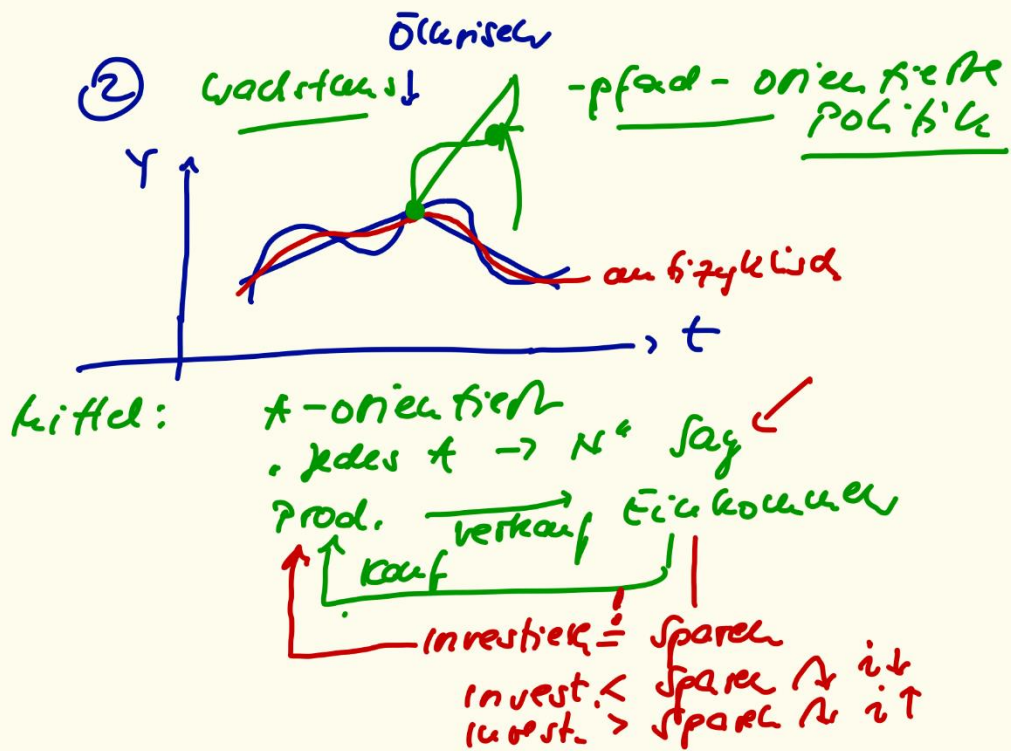 Ölkrisen
② Wachstums↓ -pfad-orientierte
Politik
Y
antizyklisch
t
Mittel: A-orientiert
"jedes A → N" Say
Prod. verkauf Einkommen
Kauf
investieren = sparen
invest. < sparen ↷ i↓
invest. > sparen ↷ i↑